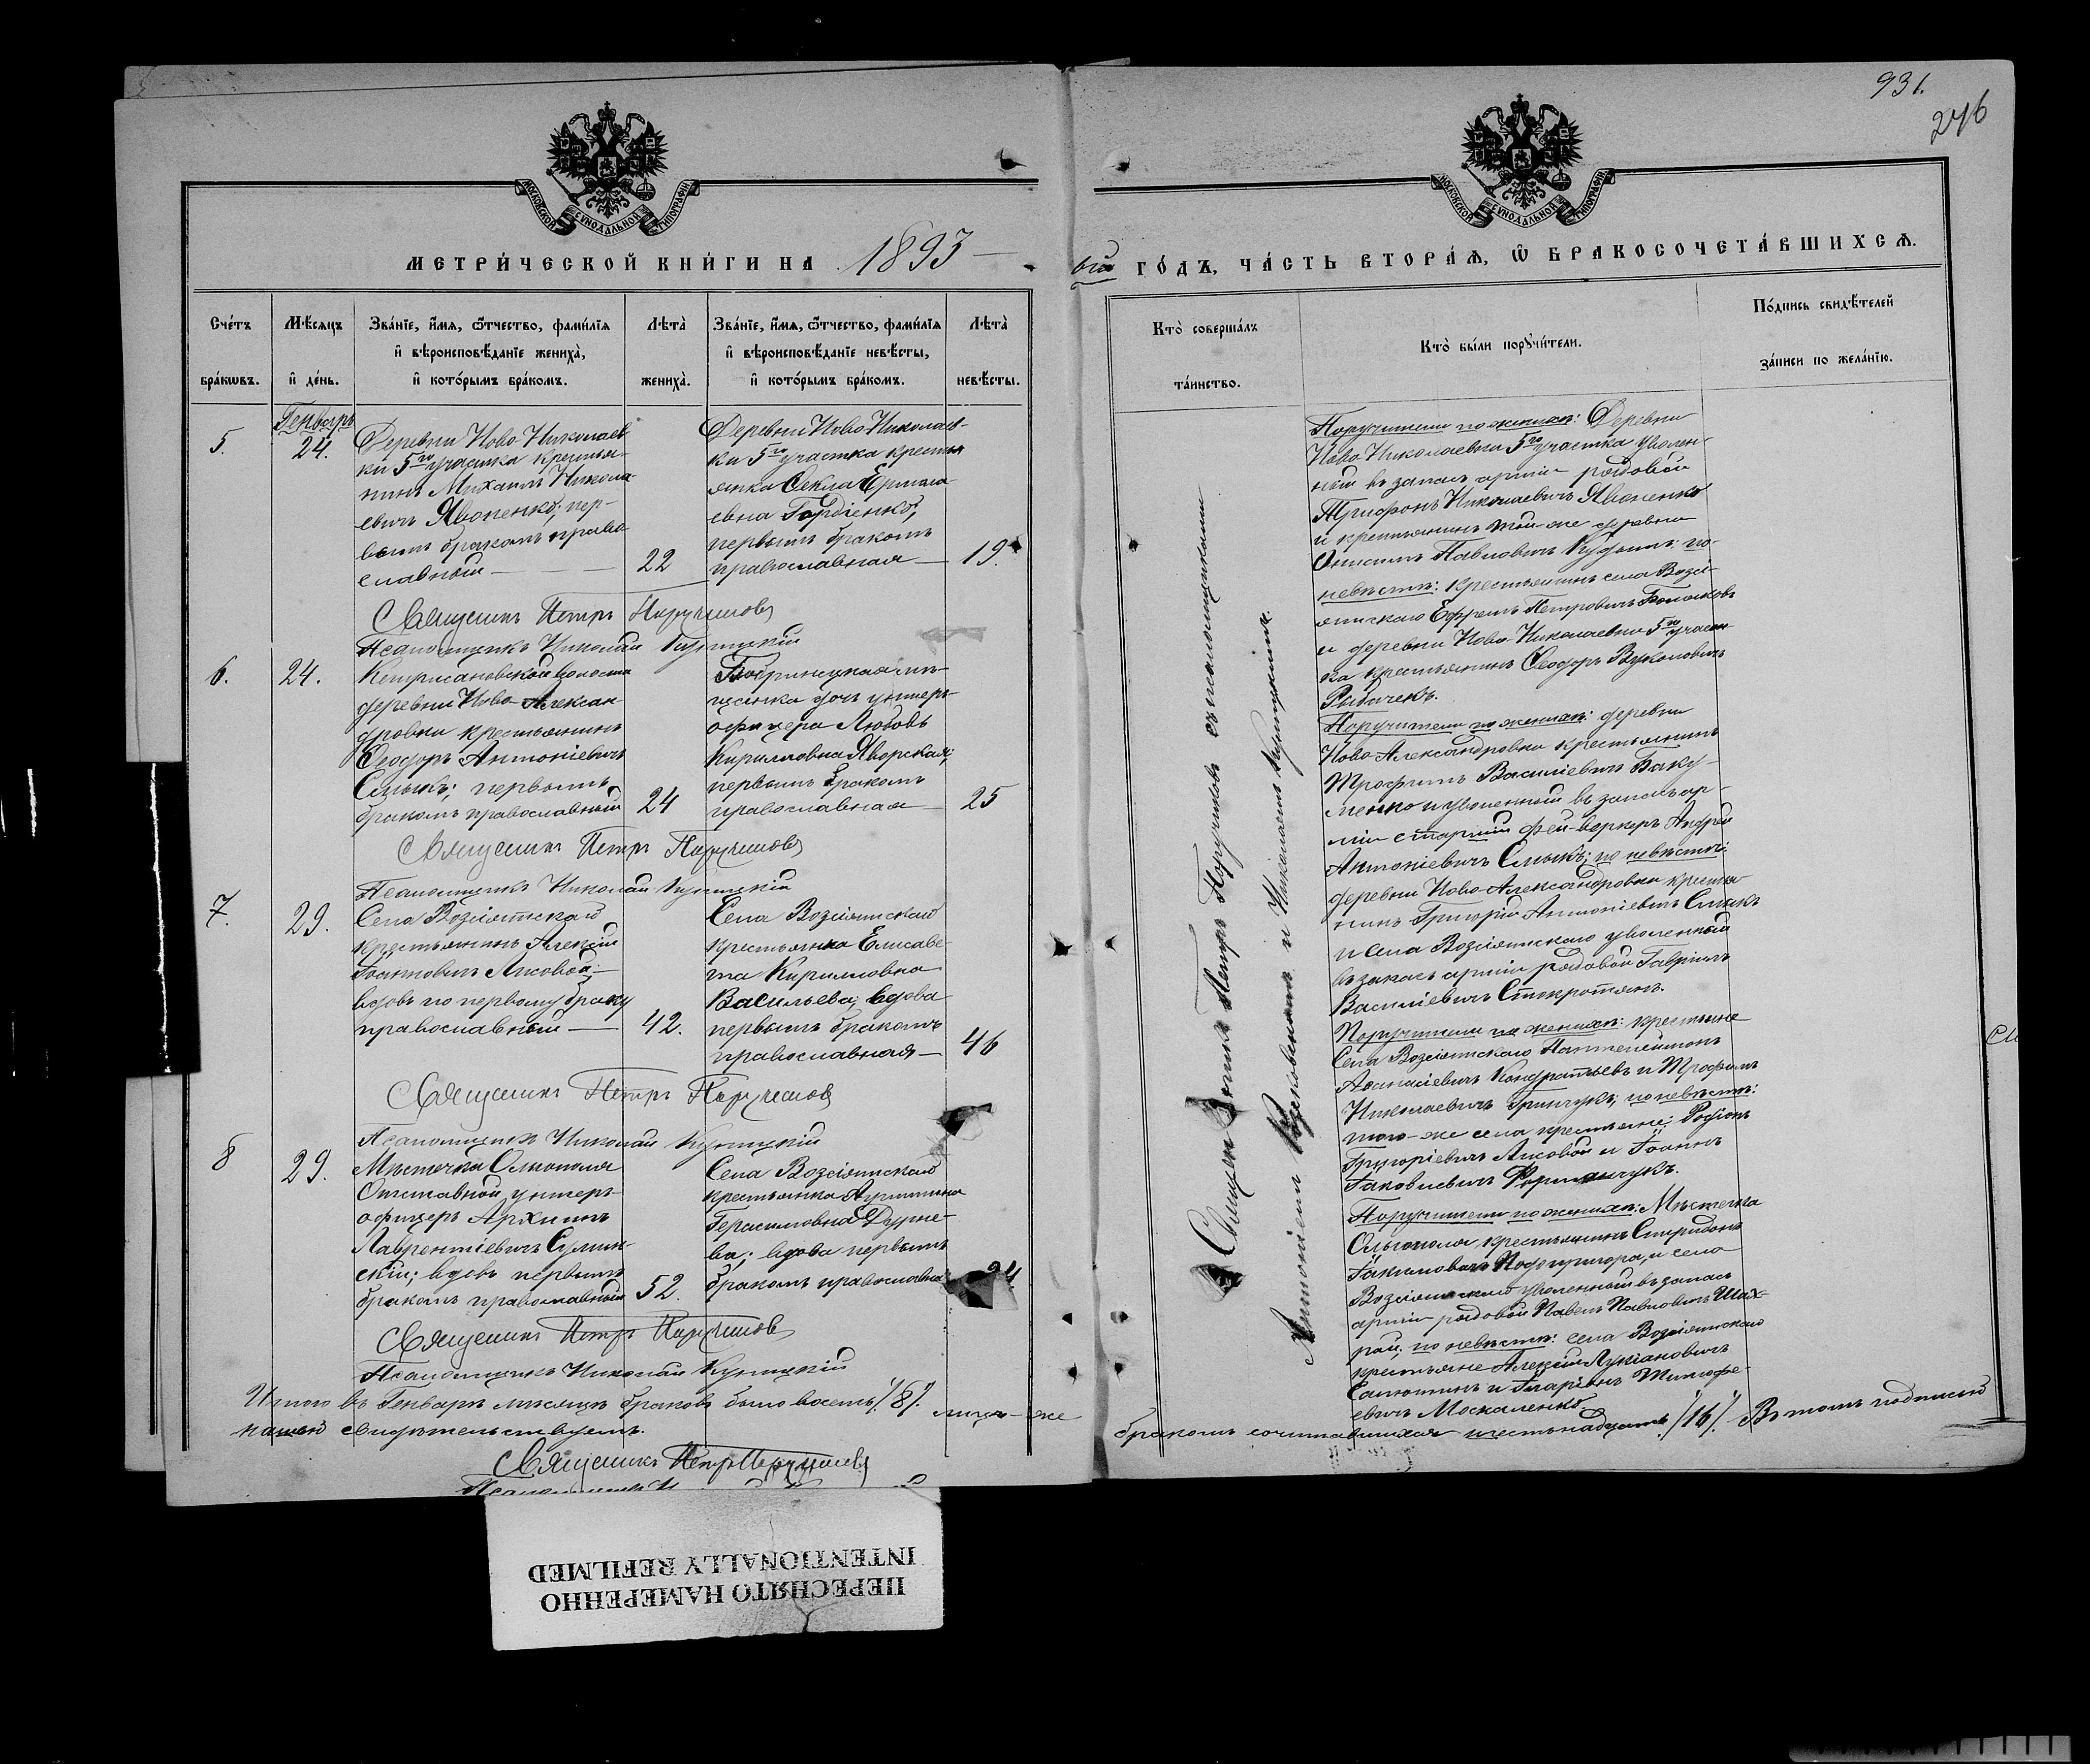 931.
246
МОСКОВСКОЙ СУНОДАЛЬНОЙ ТИПОГРАФІИ
МЕТРИ́ЧЕСКОЙ КНИ́ГИ НА 1893
Сче́тъ бра́кѡвъ.
Мѣ́сяцъ и҆ де́нь.
Зва́нїе, и҆́мѧ, ѻ҆́тчество, фами́лїѧ
и҆ вѣроисповѣ́данїе жениха̀,
и҆ кото́рымъ бра́комъ.
Лѣта̀ жениха̀.
Зва́нїе, и҆́мѧ, ѻ҆́тчество, фами́лїѧ
и҆ вѣроисповѣ́данїе невѣ́сты,
и҆ кото́рымъ бра́комъ.
Лѣта̀ невѣ́сты.
Генварь
5.
24.
Деревни Ново-Николаев
ки 5го участка крестья-
нинъ Михаилъ Никола-
евичъ Явоненко; пер-
вымъ бракомъ право
славный
22
Деревни Ново-Николаев-
ки 5го участка кресть
янка Ѳекла Ермола
евна Гордіенко;
первымъ бракомъ
православная
19.
Священникъ Петръ
Псаломщикъ Николай
6.
24.
волости
деревни Ново-Алексан-
дровки крестьянинъ
Ѳеодоръ Антоніевичъ
Смыкъ; первымъ
бракомъ православный
24
Бобринецкая мѣ-
щанка дочь унтеръ-
офицера Любовь
Кирилловна Яворская;
первымъ бракомъ
православная
25
Священникъ Петръ
Псаломщикъ Николай
7.
29.
Села Возсіятскаго
крестьянинъ Алексій
Іоанновичъ Лисовой;
вдовъ по первому браку
православный
42.
Села Возсіятскаго
крестьянка Елисаве
та Кирилловна
Васильева; вдова
первымъ бракомъ
православная
46
Священникъ Петръ
Псаломщикъ Николай
8
29.
Мѣстечка Ольгополя
Отставной унтеръ-
офицеръ Архипъ
Лаврентіевичъ
скій; вдовъ первымъ
бракомъ православный
52.
Села Возсіятскаго
крестьянка
Герасимовна Дурне-
ва; вдова первымъ
бракомъ православна
Священникъ Петръ
Псаломщикъ Николай
Итого въ Генварѣ мѣсяцѣ браковъ было восемь /8/. лицъ-же
нашей свидѣтельствуемъ.
Священникъ Петръ
ій ГО́ДЪ, ЧА́СТЬ ВТОРА́Ѧ, Ѽ БРАКОСОЧЕТА́ВШИХСѦ.
МОСКОВСКОЙ СУНОДАЛЬНОЙ ТИПОГРАФІИ
Кто̀ соверша́лъ та́инство.
Кто̀ бы́ли порꙋчи́тели.
По́дпись свидѣ́телей
за́писи по жела́нїю.
Священникъ Петръ съ псаломщиками
и Николаемъ
Поручители по женихѣ: Деревни
Ново Николаевки 5го участка уволен-
ный въ запасъ арміи рядовой
Трифонъ Николаевичъ Явоненко
и крестьянинъ той-же деревни
Онисимъ Павловичъ по-
невѣстѣ: крестьянинъ села Возсі-
ятскаго Ефремъ Петровичъ
и деревни Ново-Николаевки 5го участ-
ка крестьянинъ Ѳеодоръ Вуколовичъ
Рыбачекъ.
Поручители по женихѣ: деревни
Ново-Александровки крестьянинъ
Трофимъ Василіевичъ Баку-
менко и уволенный въ запасъ ар-
міи старшій фей-веркеръ Андрей
Антоніевичъ Смыкъ; по невѣстѣ:
деревни Ново-Александровки крестья-
нинъ Григорій Антоніевичъ Смыкъ
и села Возсіятскаго уволенный
въ запасъ арміи рядовой Гавріилъ
Василіевичъ
Поручители по женихѣ: крестьяне
Села Возсіятскаго Пантелеимонъ
Аѳанасіевичъ Кондратьевъ и Трофимъ
Николаевичъ Гринчукъ; по невѣстѣ:
того-же села крестьяне: Родіонъ
Григоріевичъ Лисовой и Іоаннъ
Іаковлевичъ
Поручители по женихѣ: Мѣстечка
Ольгополя крестьянинъ Спиридонъ
Іакимовичъ Подопригора, и села
Возсіятскаго уволенный въ запасъ
арміи рядовой Павелъ Павловичъ Шах-
рай; по невѣстѣ: села Возсіятскаго
крестьяне Алексій Лукіановичъ
и Иларіонъ Тимофе-
евичъ Москаленко.
бракомъ сочетавшихся шестьнадцать /16/. Въ томъ подписью
ПЕРЕСНЯТО НАМЕРЕННО
INTENTIONALLY REFILMED